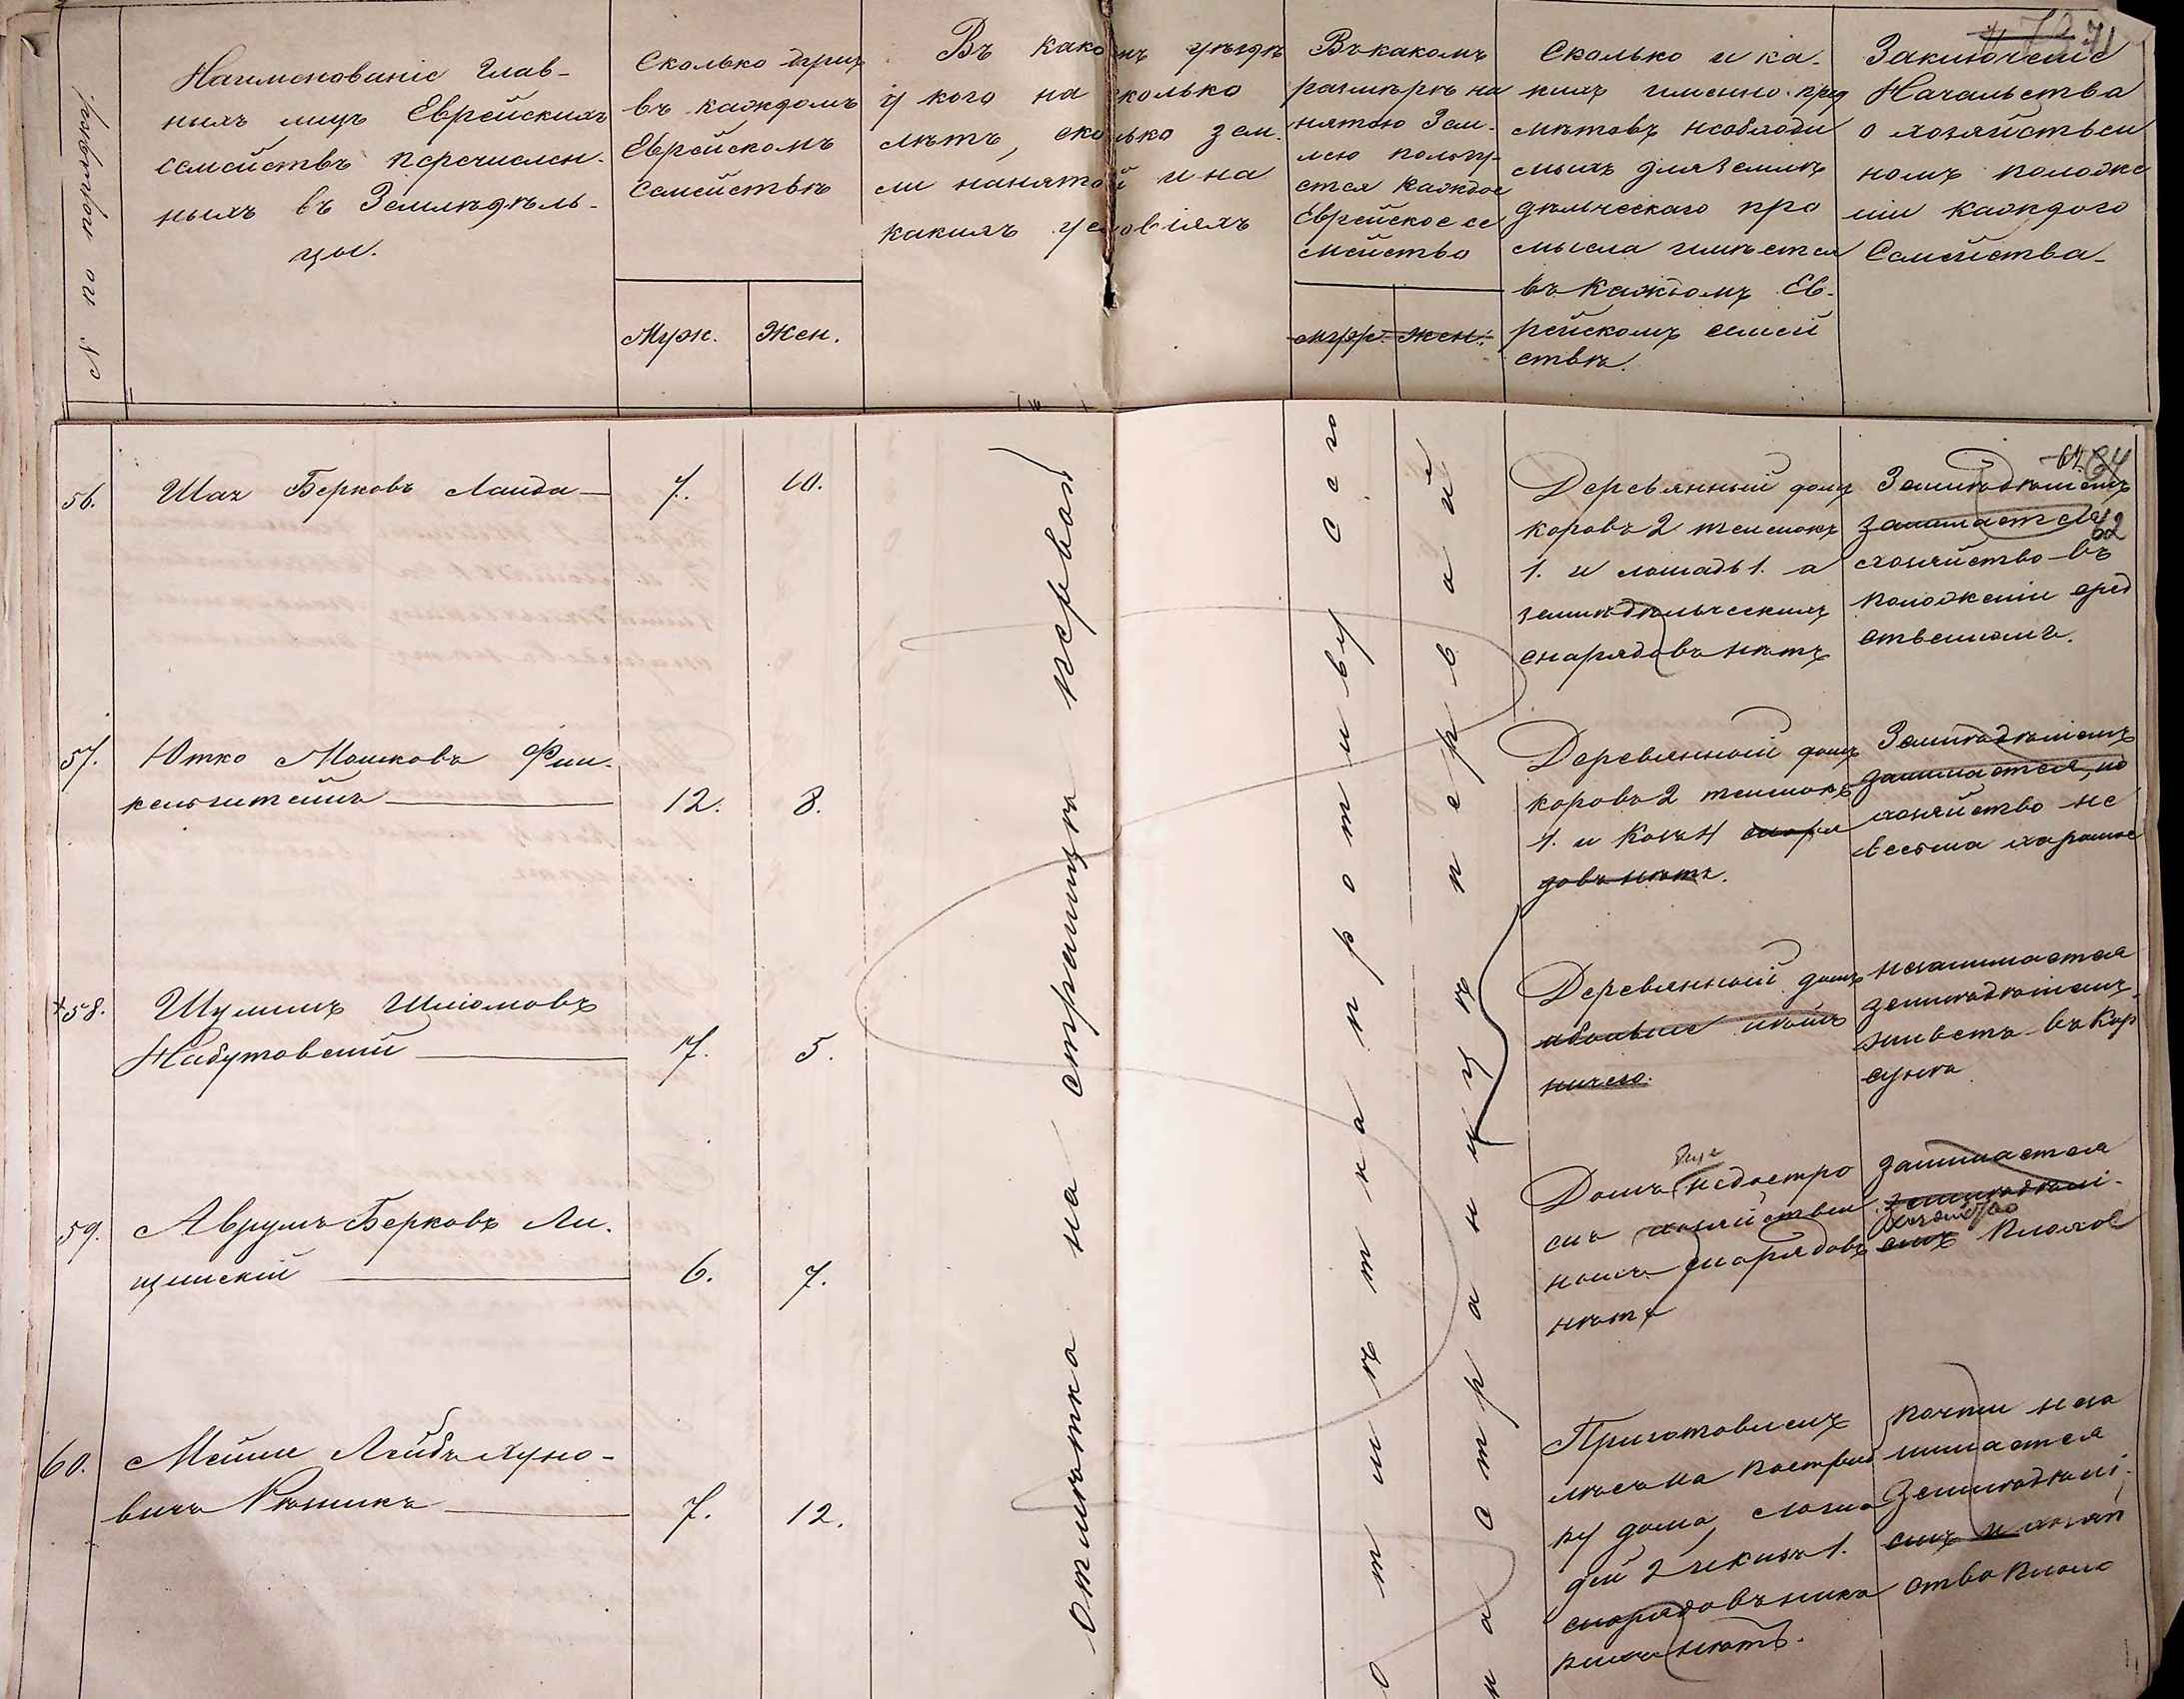 № по порядку.
Наименованіе Глав-
ныхъ лицъ Еврейскихъ
семействъ перечислен-
ныхъ въ Земледѣль-
цы.
Сколько душъ
въ каждомъ
Еврейскомъ
Семействѣ
Муж.
Жен.
Въ какомъ уѣздѣ
у кого на сколько
лѣтъ, сколько зем-
ли нанятой и на
какихъ условіяхъ
Въ какомъ
размѣрѣ на
нятою Зем-
лею пользу-
ется каждое
Еврейское се
мейство
муж. жен.
Сколько и ка-
кихъ именно пред
мѣтовъ необходи
мыхъ для земле
дѣльческаго про
мысла имѣется
въ каждомъ Ев-
рейскомъ семей
ствѣ.
71
Заключеніе
Начальства
о хозяйствен
номъ положе
ніи каждого
Семейства.
56.
Шая Берковъ Ланда
7.
10.
Деревянный домъ
коровъ 2 теленокъ
1. и лошадь 1. а
земледѣльческихъ
снарядовъ нѣтъ
64
62
Земледѣліемъ
занимается
хозяйство въ
положеніи сред
ственномъ.
57.
Ютко Мошковъ Фин-
кельштейнъ
12.
8.
Деревянный домъ
коровъ 2 теленокъ
1. и Козъ 4 снаря
довъ нѣтъ.
Земледѣліемъ
занимается, но
хозяйство не
весьма хорошое
+58.
Шулимъ Шліомовъ
Набутовскій
7.
5.
Деревянный домъ
а больше нѣтъ
ничего.
незанимается
земледѣліемъ,
живетъ въ Кор
сунѣ
59.
Аврумъ Берковъ Ли-
щинскій
6.
7.
Домъ еще недостро
енъ хозяйствен
ныхъ снарядовъ
нѣтъ
занимается
земледѣлі-
емъ хозяйство плохое
60.
Мейше Лейбъ Хуно-
вичъ Рѣзникъ
7.
12.
Приготовленъ
лѣсъ на построй
ку дома, лоша
дей 2
снарядовъ ника
кихъ нѣтъ.
почти неза
нимается
Земледѣлі-
емъ и хозяй
ство плохо
отмѣтка на страницѣ первой
отмѣтка противу сего
на страницѣ первай